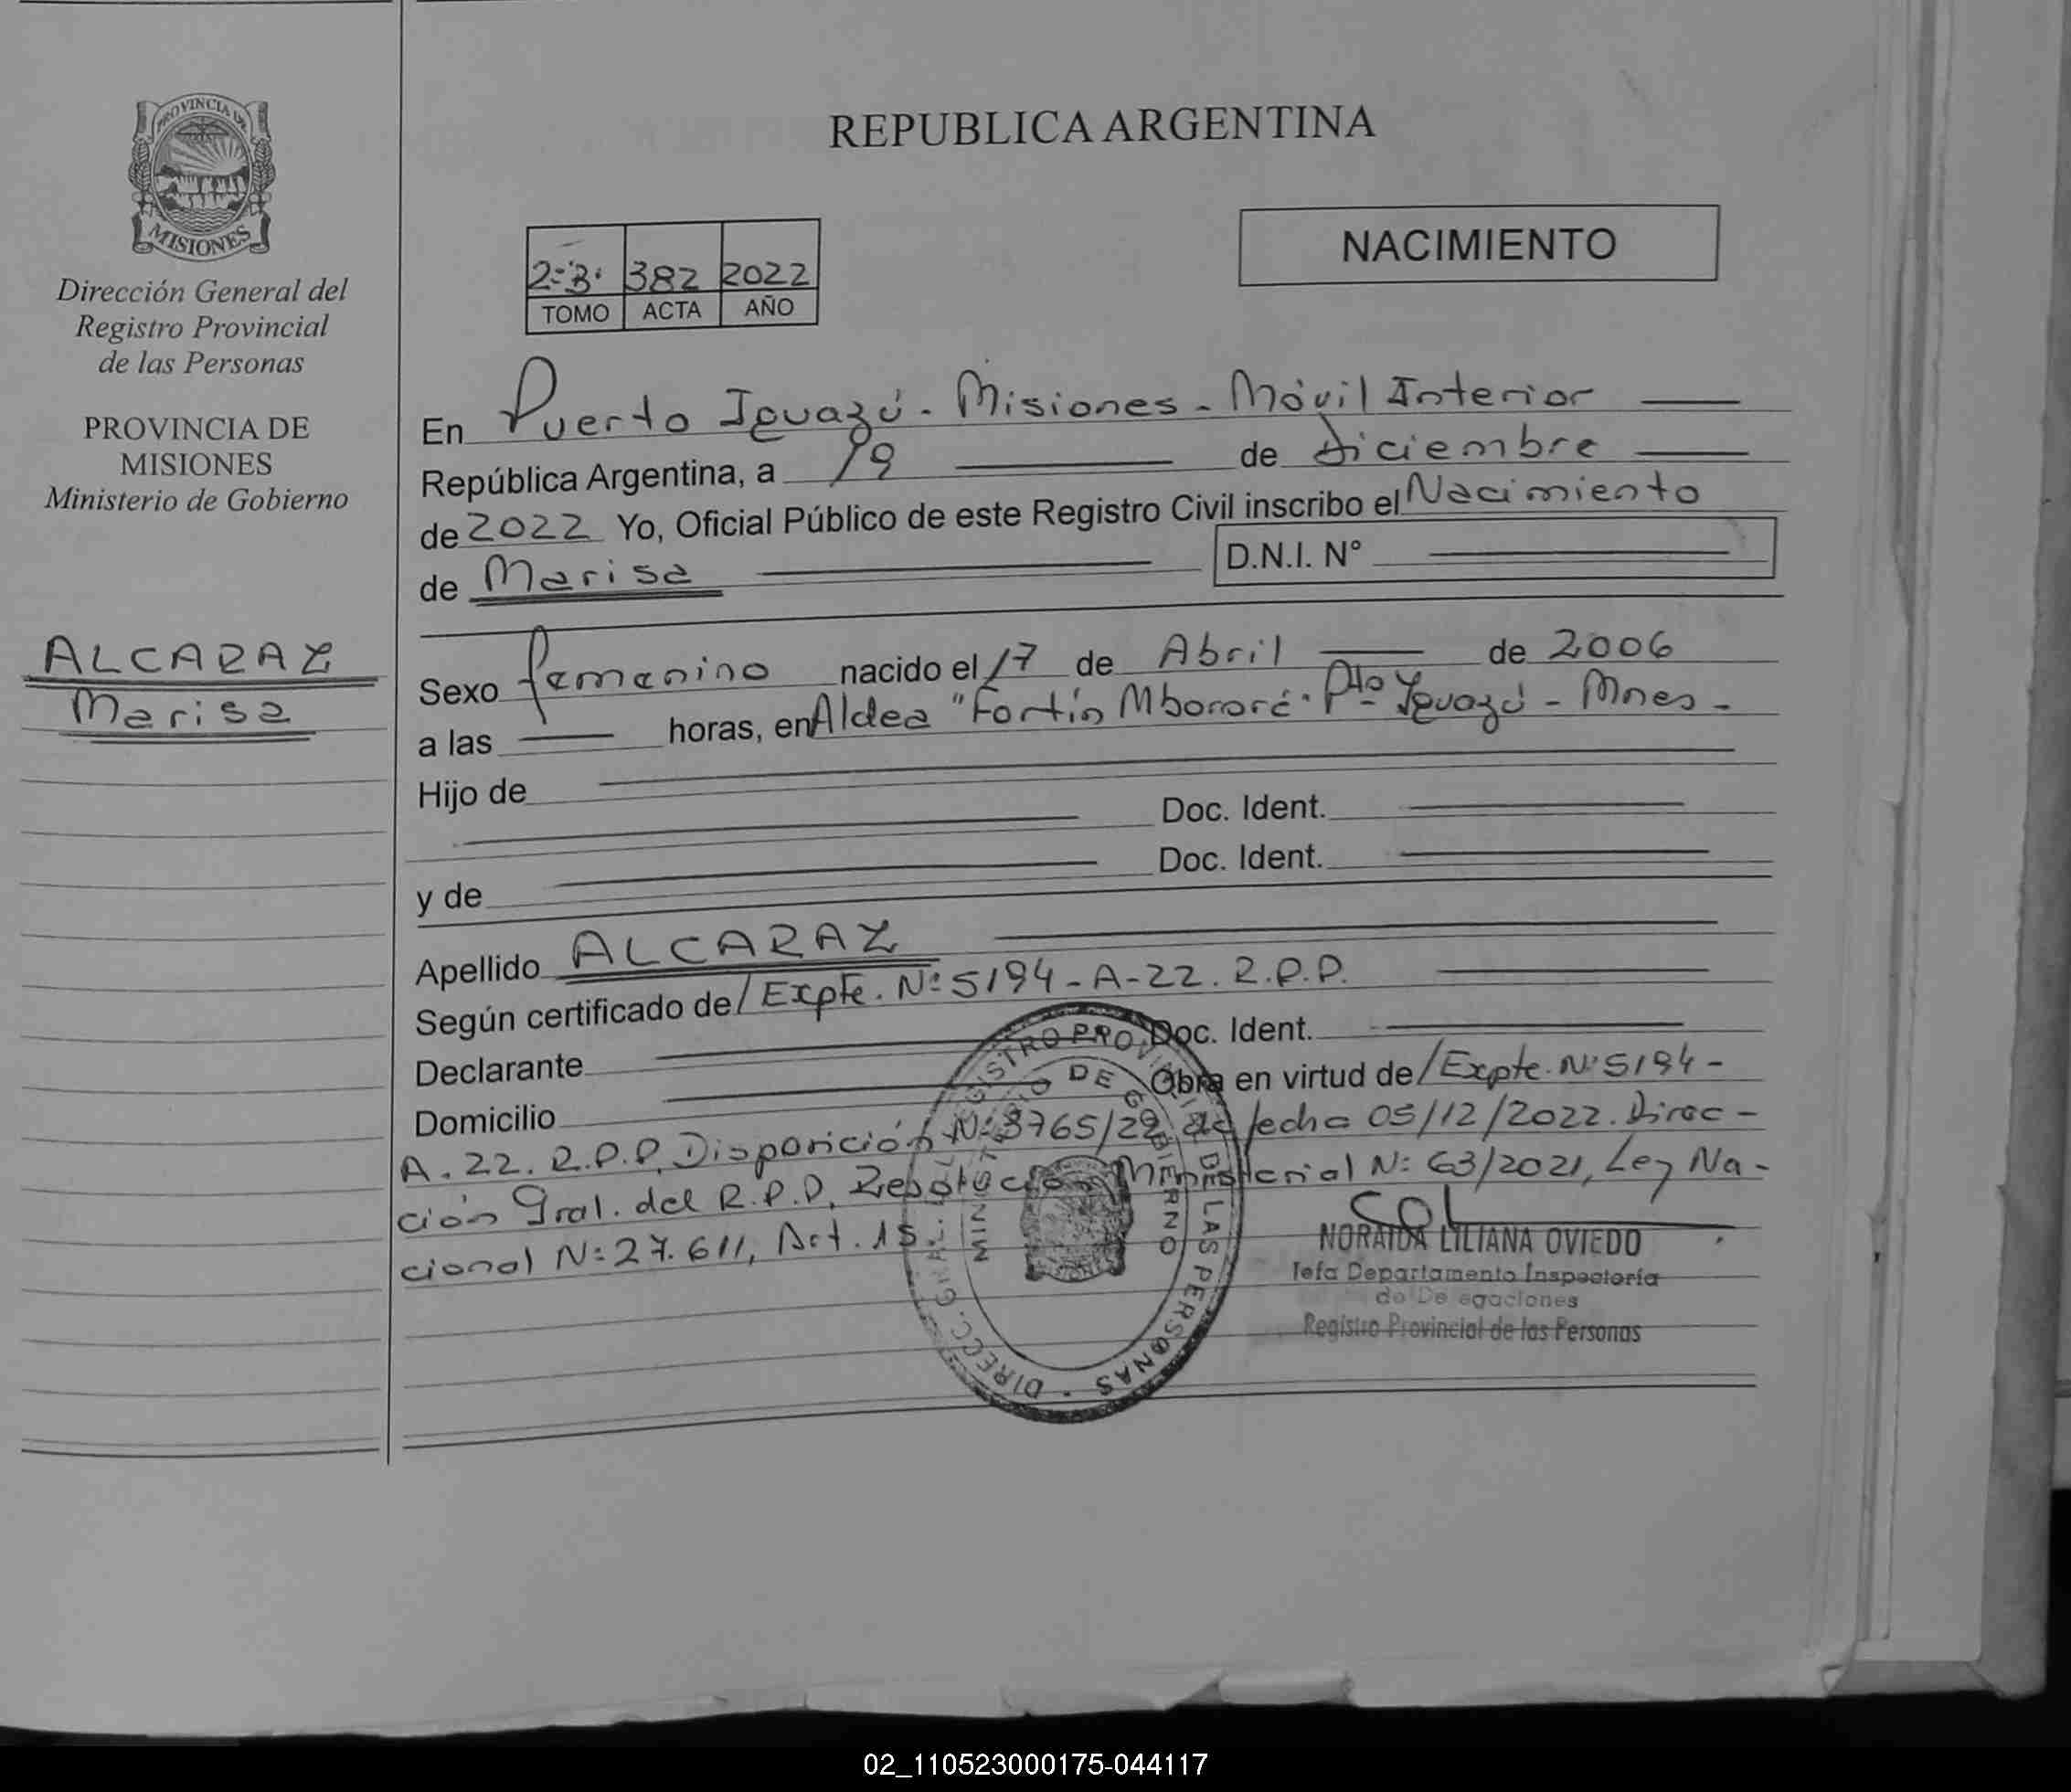 PROVINCIA DE
MISIONES
Dirección General del
Registro Provincial
de las Personas
PROVINCIA DE
MISIONES
Ministerio de Gobierno
ALCARAZ
Marisa
REPUBLICA ARGENTINA
NACIMIENTO
2-B. 382 2022
TOMO ACTA AÑO
En Puerto Iguazú - Misiones - Móvil Interior
República Argentina, a 19 de diciembre
de 2022 Yo, Oficial Público de este Registro Civil inscribo el Nacimiento
de Marisa D.N.I. N°
Sexo femenino nacido el 17 de Abril de 2006
a las horas, en Aldea "Fortín Mbororé" Pto Iguazú - Mnes -
Hijo de
Doc. Ident.
y de Doc. Ident.
Apellido ALCARAZ
Según certificado de/ Expte. N: 5194-A-22. R.P.P.
Declarante Doc. Ident.
Domicilio Obra en virtud de/ Expte. N: 5194-
A. 22. R.P.P. Disposición N: 3765/22 de fecha 05/12/2022. Direc-
ción Gral. del R.P.P. Resolución Ministerial N: 63/2021, Ley Na-
cional N: 27.611, Art. 15
DIRECC. GRAL. DEL REGISTRO PROVINCIAL DE LAS PERSONAS
MINISTERIO DE GOBIERNO
NORAIDA LILIANA OVIEDO
Jefa Departamento Inspectoría
de Delegaciones
Registro Provincial de las Personas
02_110523000175-044117